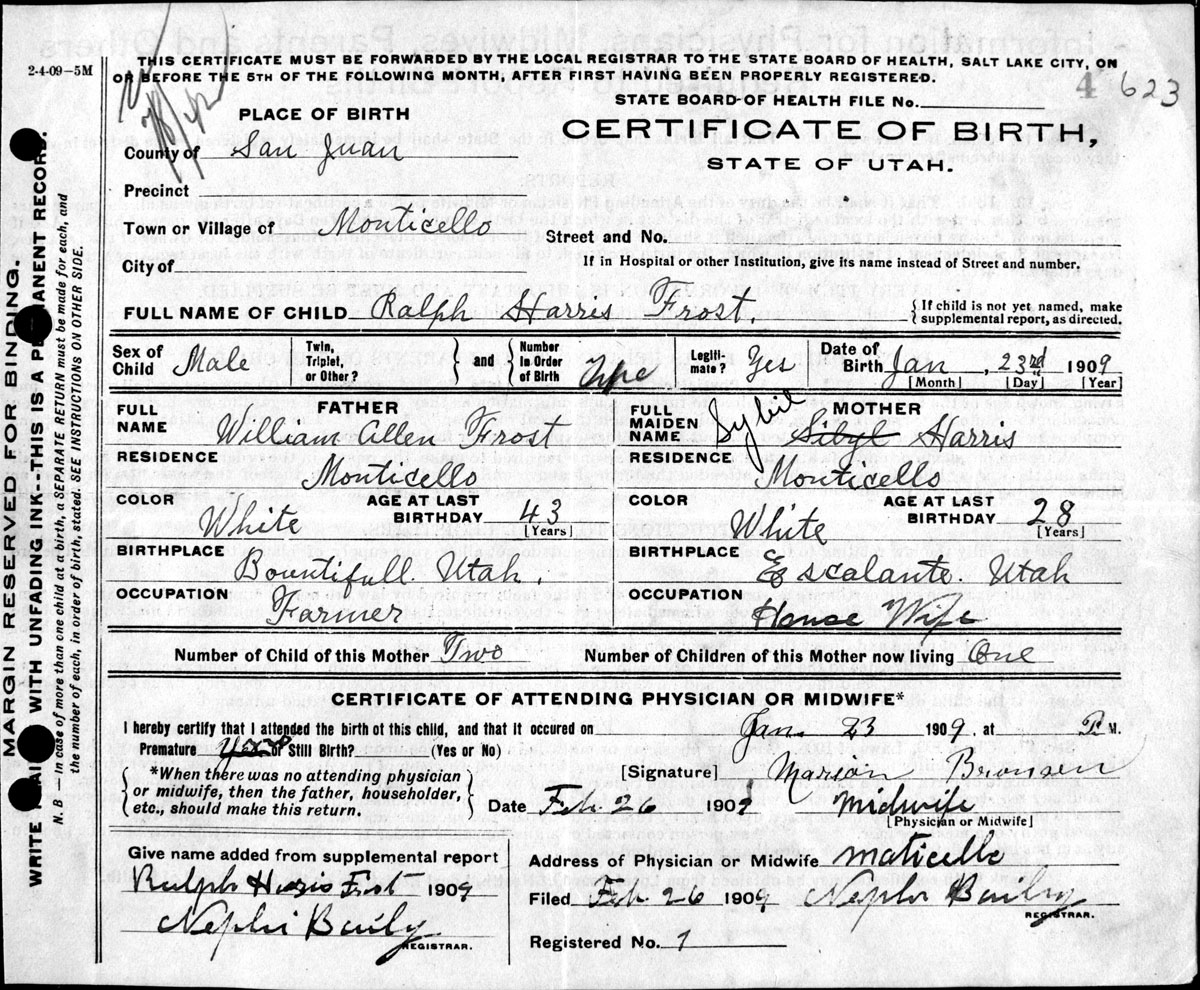 2-4-09-5M
THIS CERTIFICATE MUST BE FORWARDED BY THE LOCAL REGISTRAR TO THE STATE BOARD OF HEALTH, SALT LAKE CITY, ON
OR BEFORE THE 5TH OF THE FOLLOWING MONTH, AFTER FIRST HAVING BEEN PROPERLY REGISTERED.
4 623
STATE BOARD OF HEALTH FILE No.
PLACE OF BIRTH
CERTIFICATE OF BIRTH,
STATE OF UTAH.
County of San Juan
Precinct
Town or Village of Monticello
Street and No.
City of
If in Hospital or other Institution, give its name instead of Street and number.
FULL NAME OF CHILD Ralph Harris Frost. { If child is not yet named, make supplemental report, as directed.
Sex of Child Male
Twin, Triplet, or Other? } and { Number in Order of Birth
Legiti-mate? Yes
Date of Birth Jan, 23rd 1909
[Month] [Day] [Year]
FATHER
FULL NAME William Allen Frost
RESIDENCE Monticello
COLOR White AGE AT LAST BIRTHDAY 43 [Years]
BIRTHPLACE Bountifull Utah.
OCCUPATION Farmer
MOTHER
FULL MAIDEN NAME Sybil Sibyl Harris
RESIDENCE Monticello
COLOR White AGE AT LAST BIRTHDAY 28 [Years]
BIRTHPLACE Escalante. Utah
OCCUPATION House Wife
Number of Child of this Mother Two Number of Children of this Mother now living One
CERTIFICATE OF ATTENDING PHYSICIAN OR MIDWIFE*
I hereby certify that I attended the birth of this child, and that it occured on Jan. 23 1909, at P. M.
Premature Still Birth? (Yes or No)
{ *When there was no attending physician
or midwife, then the father, householder,
etc., should make this return. }
[Signature] Marion Bronsen
Date Feb. 26 1909 Midwife
[Physician or Midwife]
Give name added from supplemental report
Ralph Haris Frost 1909
Nephi Baily
REGISTRAR.
Address of Physician or Midwife Moticello
Filed Feb 26 1909 Nephi Baily
REGISTRAR.
Registered No. 7
MARGIN RESERVED FOR BINDING.
WRITE WITH UNFADING INK--THIS IS A PERMANENT RECORD.
N. B — In case of more than one child at a birth, a SEPARATE RETURN must be made for each, and
the number of each, in order of birth, stated. SEE INSTRUCTIONS ON OTHER SIDE.